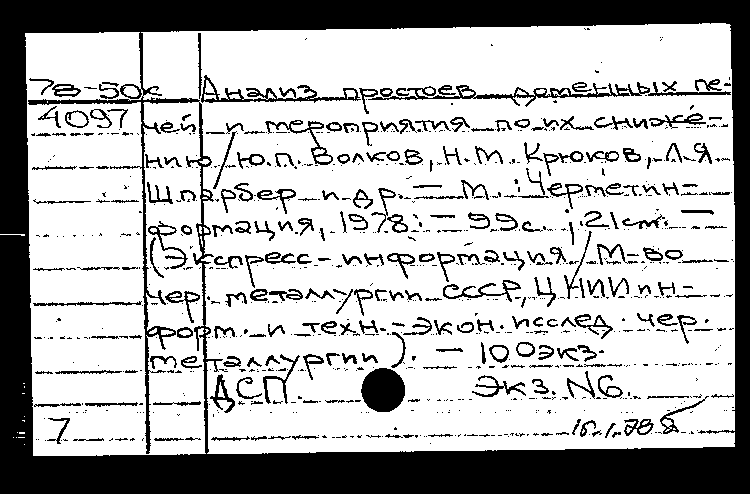 78-50к Анализ простоев доменных пе-
4097 чей и мероприятия по их сниже-
нию / Ю.П. Волков, Н.М. Крюков, Л.Я.
Шпарбер и др. — М.: Черметин-
формация, 1978. — 99с.; 21см. —
(Экспресс-информация / М-во
чер. металлургии СССР, ЦНИИ ин-
форм. и техн.-экон. исслед. чер.
металлургии). — 100экз.
ДСП. Экз. N6.
7